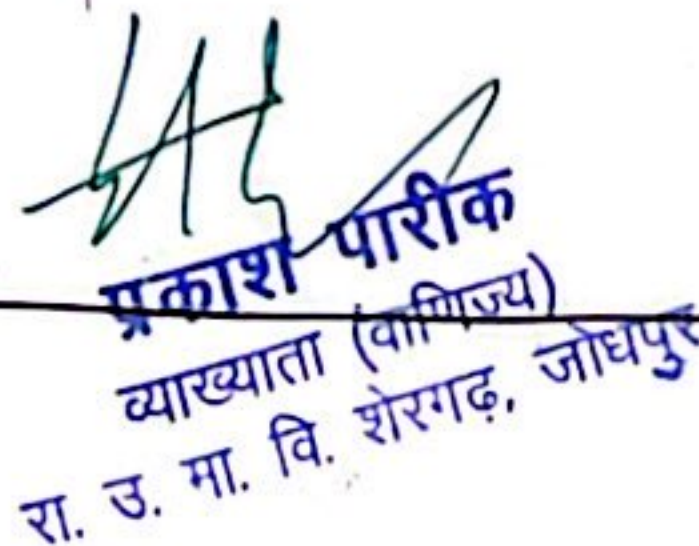 प्रकाश पारीक
व्याख्याता (वाणिज्य)
रा. उ. मा. वि. शेरगढ़, जोधपुर